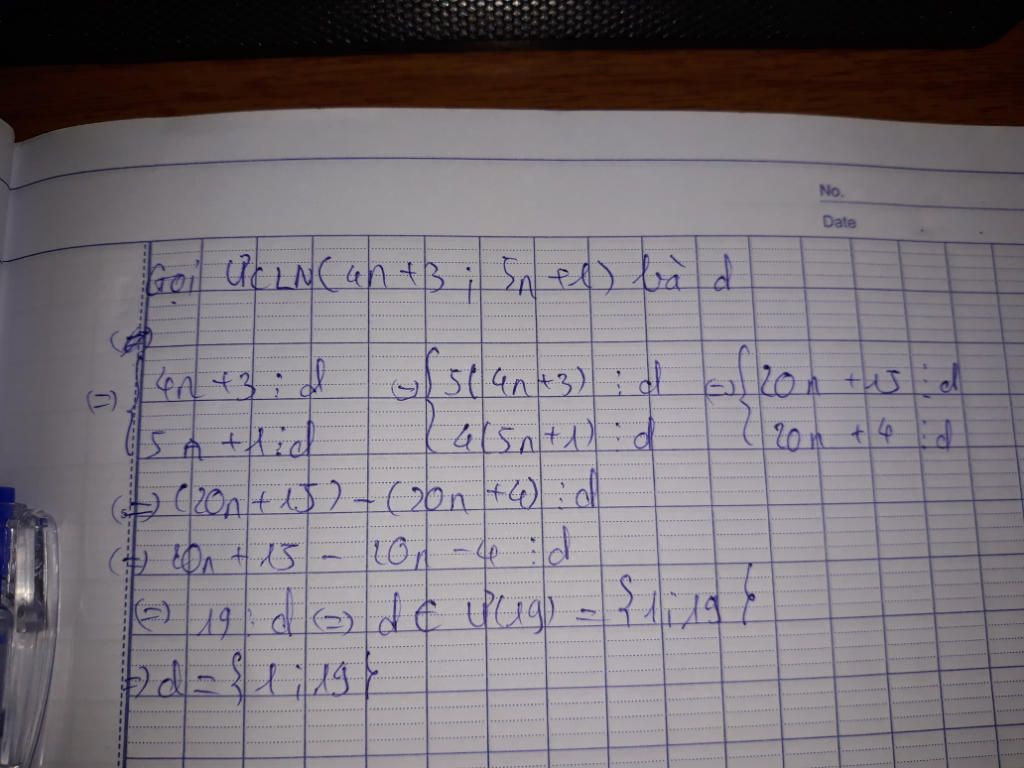 No.
Date
Gọi ƯCLN(4n+3; 5n+1) là d
(=) { 4n+3 ⋮ d (=) { 5(4n+3) ⋮ d (=) { 20n+15 ⋮ d
{ 5n+1 ⋮ d { 4(5n+1) ⋮ d { 20n+4 ⋮ d
(=) (20n+15) - (20n+4) ⋮ d
(=) 20n+15 - 20n - 4 ⋮ d
(=) 19 ⋮ d (=) d ∈ Ư(19) = {1; 19}
=) d = {1; 19}